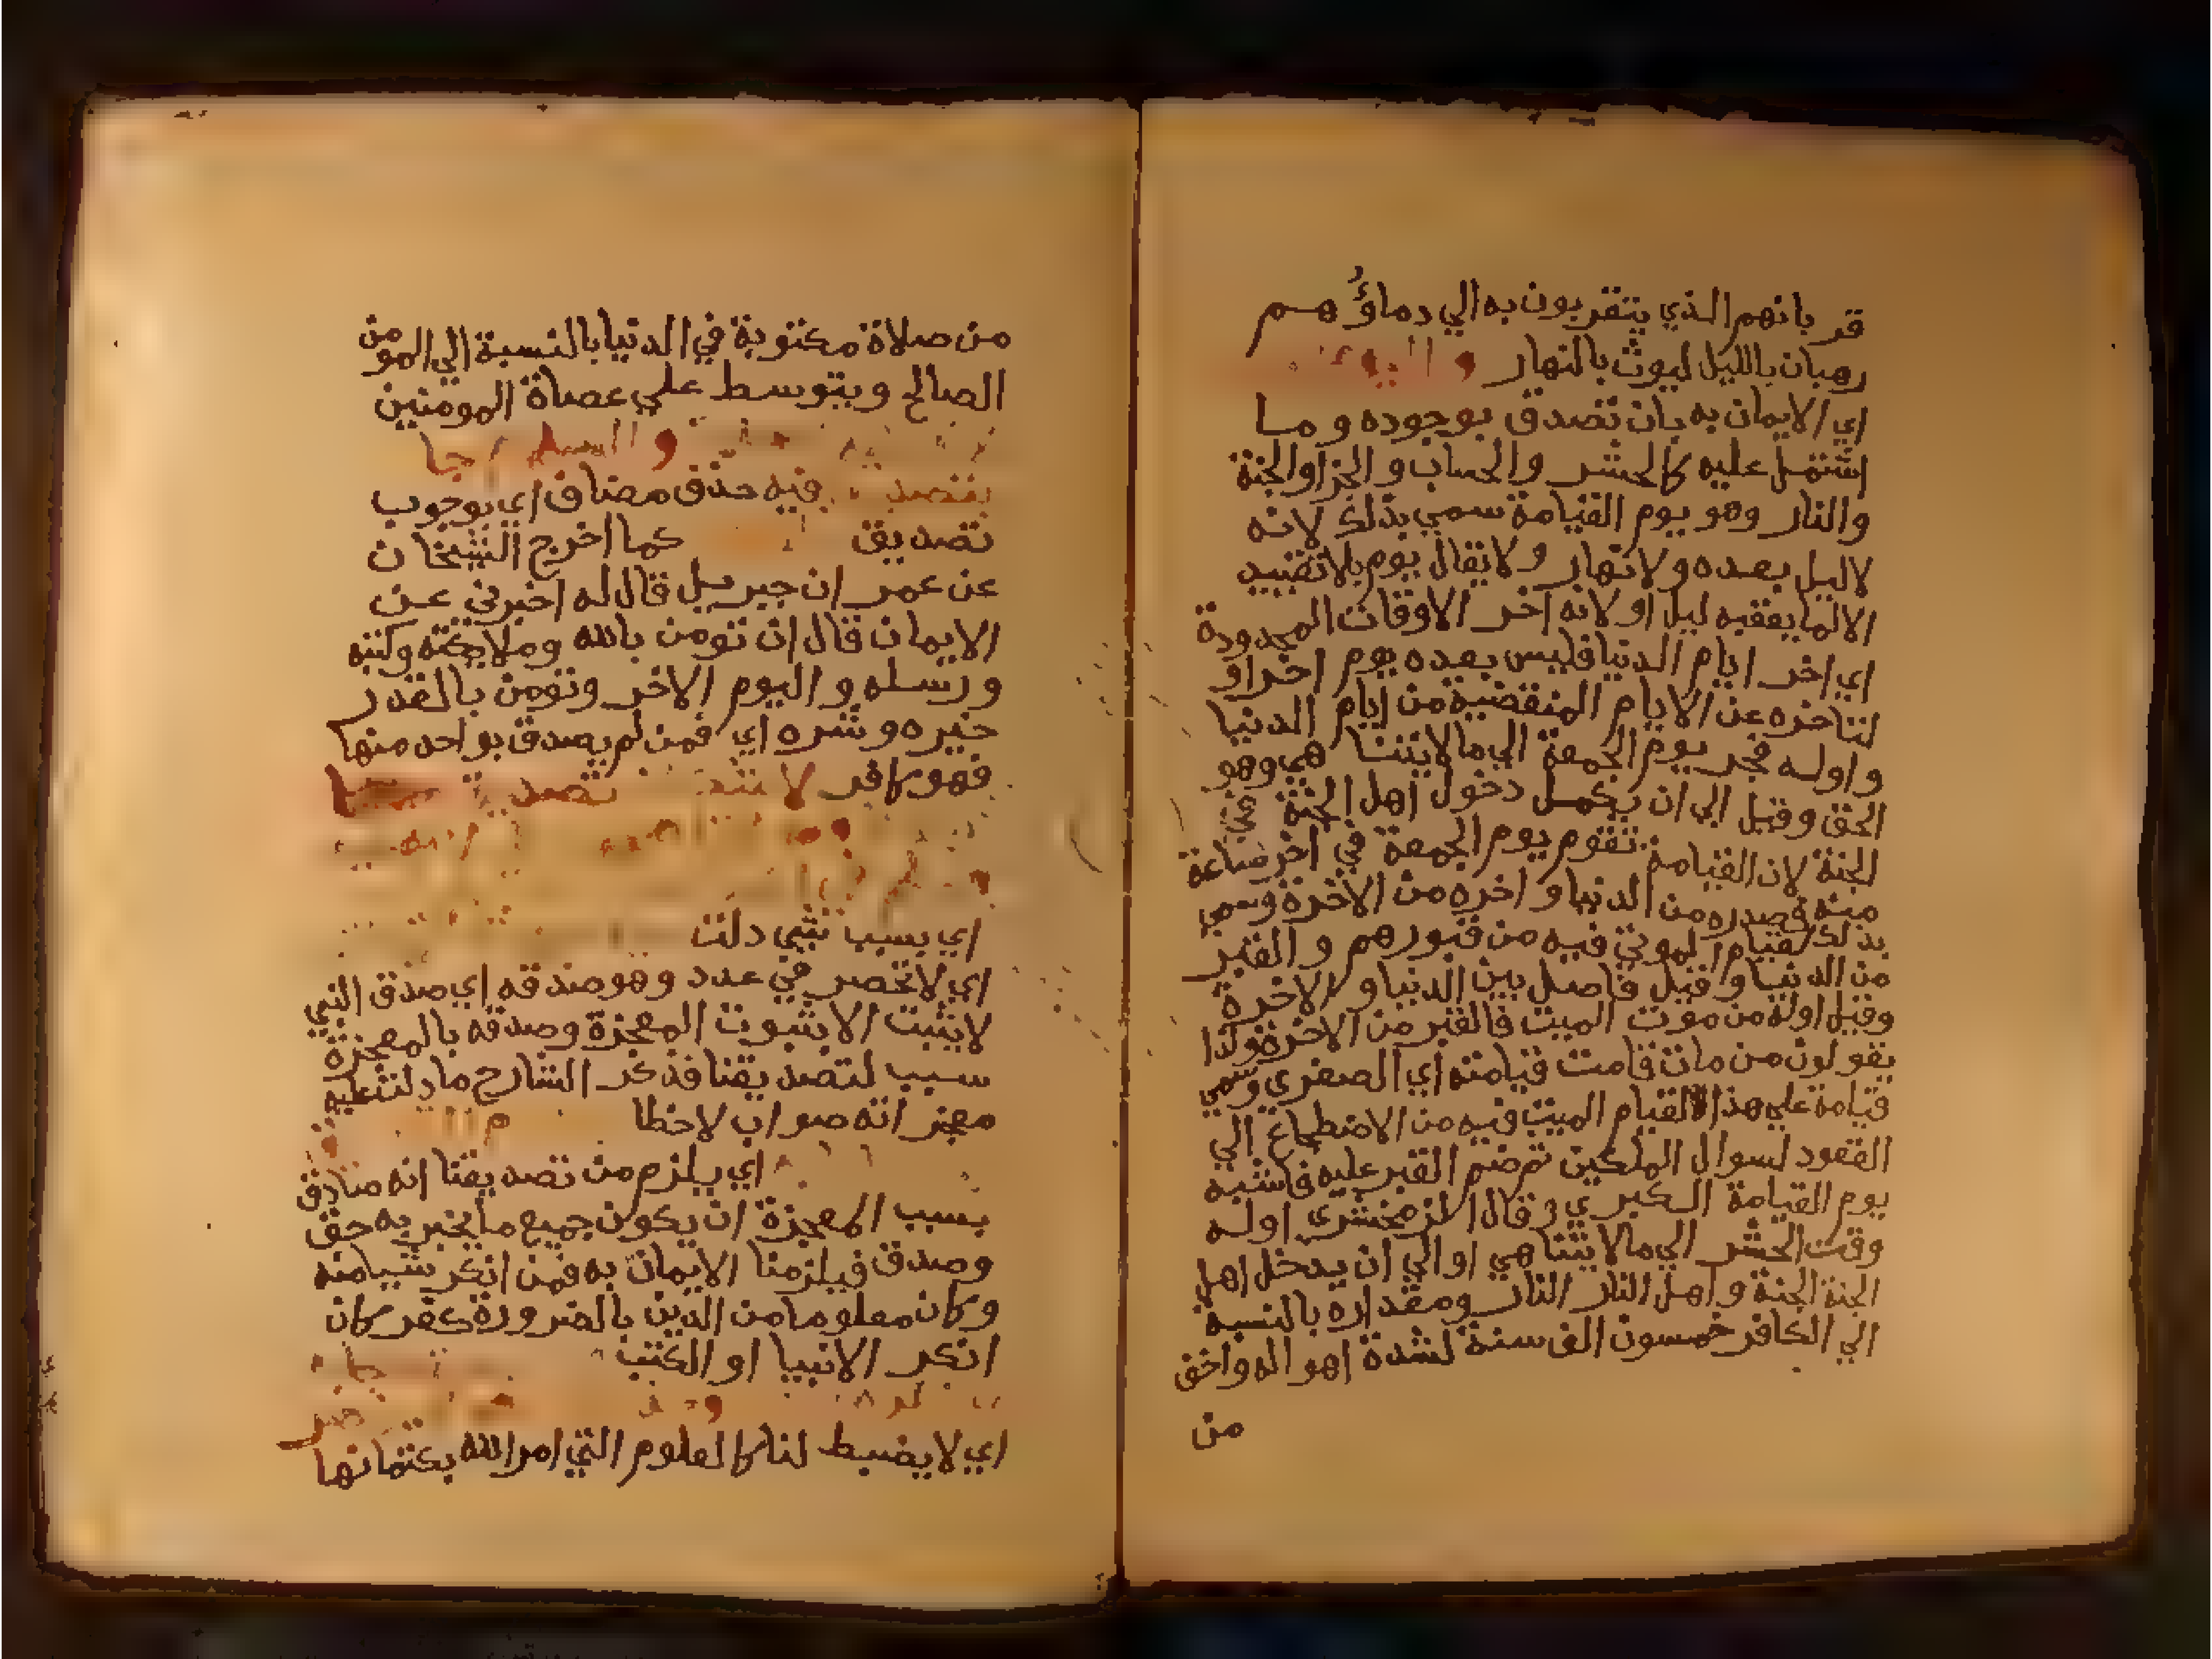 قر بانهم الذي يتقربون به الي دماؤهم
رهبان بالليل ليوث بالنهار
اي الايمان به بان تصدق بوجوده وما
اشتمل عليه كالحشر والحساب والجزا والجنة
والنار وهو يوم القيامة سمي بذلك لانه
لاليل بعده ولا نهار ولا يقال يوم بلا تقييد
الا لما يعقبه ليل او لانه اخر الاوقات المحدودة
اي اخر ايام الدنيا فليس بعده يوم اخر او
لتاخره عن الايام المنقضية من ايام الدنيا
واوله فجر يوم الجمعة الي مالا يتناهي وهو
الحق وقيل الي ان يكمل دخول اهل الجنة
الجنة لان القيامة تقوم يوم الجمعة في اخر ساعة
منه فصدره من الدنيا واخره من الاخرة وسمي
بذلك لقيام الموتي فيه من قبورهم والقبر
من الدنيا وقيل فاصل بين الدنيا والاخرة
وقيل اوله من موت الميت فالقبر من الاخرة ولذا
يقولون من مات قامت قيامته اي الصغري وسمي
قيامة علي هذا لقيام الميت فيه من الاضطجاع الي
القعود لسوال الملكين ثم ضم القبر عليه فاشبه
يوم القيامة الكبري وقال الزمخشري اوله
وقت الحشر الي مالا يتناهي او الي ان يدخل اهل
الجنة الجنة واهل النار النار ومقداره بالنسبة
الي الكافر خمسون الف سنة لشدة اهواله واخف
من
من صلاة مكتوبة في الدنيا بالنسبة الي المومن
الصالح ويتوسط علي عصاة المومنين
فيه حذف مضاف اي بوجوب
تصديق كما اخرج الشيخان
عن عمر ان جبريل قال له اخبرني عن
الايمان قال ان تومن بالله وملايكته وكتبه
ورسله واليوم الاخر وتومن بالقدر
خيره وشره اي فمن لم يصدق بواحد منها
فهو كافر
اي بسبب شي دلت
اي لا تحصر في عدد وهو صدقه اي صدق النبي
لا يثبت الا بثبوت المعجزة وصدقه بالمعجزة
سبب لتصديقنا فذكر الشارح ما دلت عليه
معجز انه صواب لاخطا
اي يلزم من تصديقنا انه صادق
بسبب المعجزة ان يكون جميع ما يخبر به حق
وصدق فيلزمنا الايمان به فمن انكر شيا منه
وكان معلوما من الدين بالضرورة كفر كان
انكر الانبيا او الكتب
اي لا يضبط لنا كالعلوم التي امر الله بكتمانها